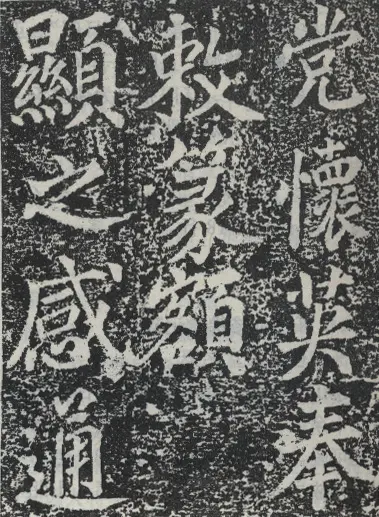 党懷英奉
敕篆額
顯之感通